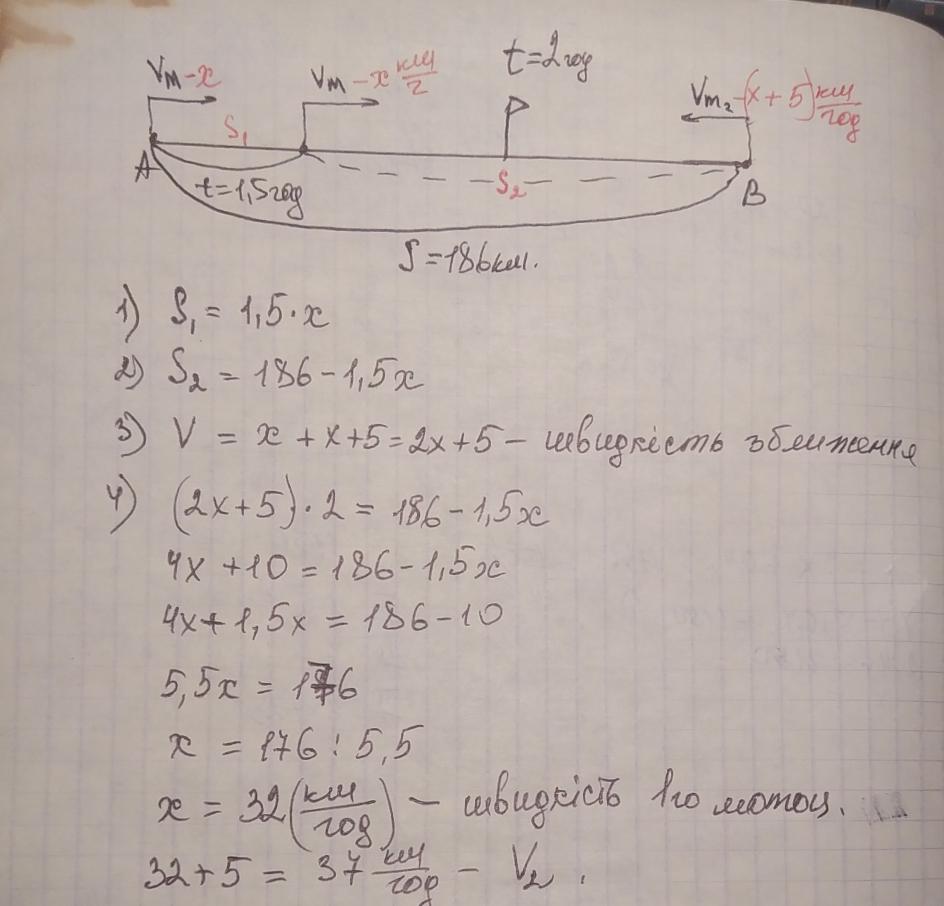 t=2год
Vм-x
Vм-x км/г
Vм₂-(x+5) км/год
S₁
A
t=1,5год
S₂
B
S=186км.
1) S₁ = 1,5·x
2) S₂ = 186-1,5x
3) V = x+x+5=2x+5 - швидкість зближення
4) (2x+5)·2 = 186-1,5x
4x+10=186-1,5x
4x+1,5x=186-10
5,5x = 176
x = 176:5,5
x = 32(км/год) - швидкість 1го мотоц.
32+5 = 37 км/год - V₂.